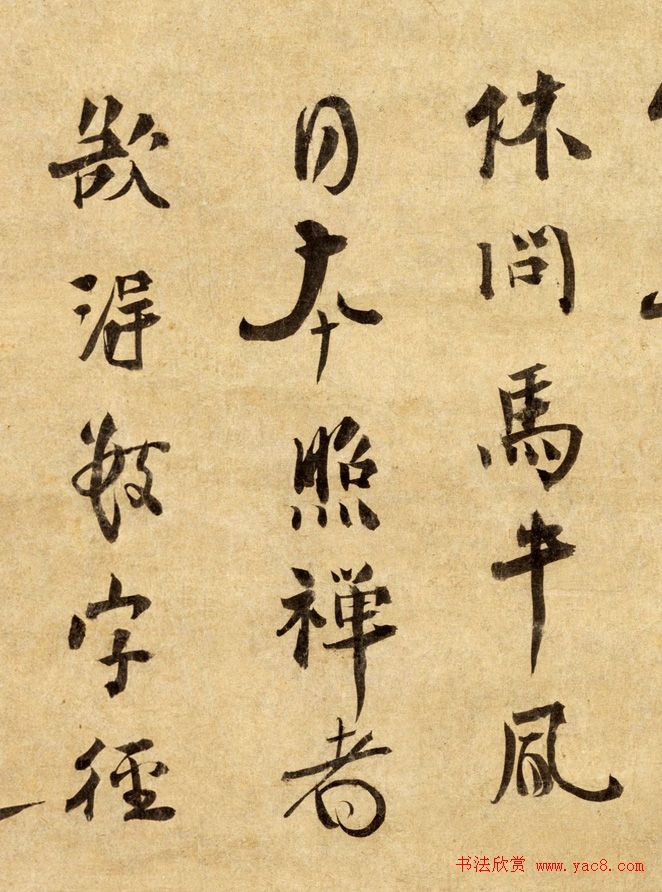 休問馬牛風
日本照禪者
欲得數字徑
书法欣赏 www.yac8.com